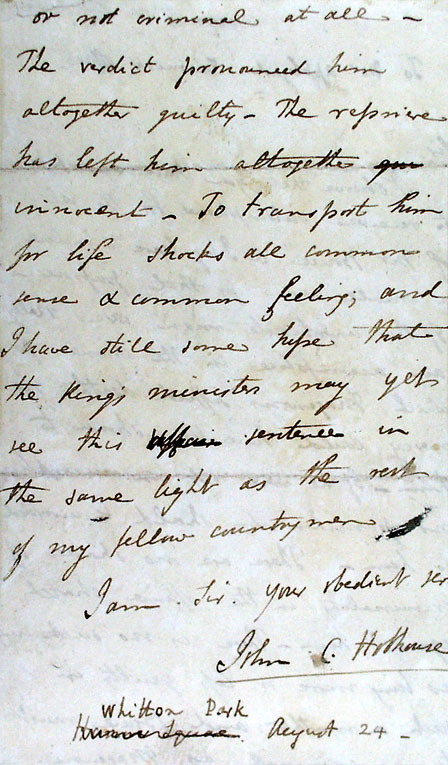 or not criminal at all –
The verdict pronounced him
altogether guilty – The reprieve
has left him altogether
innocent – To transport him
for life shocks all common
sense & common feeling; and
I have still some hope that
the King's ministers may yet
see this affair sentence in
the same light as the rest
of my fellow countrymen
I am Sir. your obedient ser
John C. Hobhouse
Whitton Park
Hanover Square. August 24 –